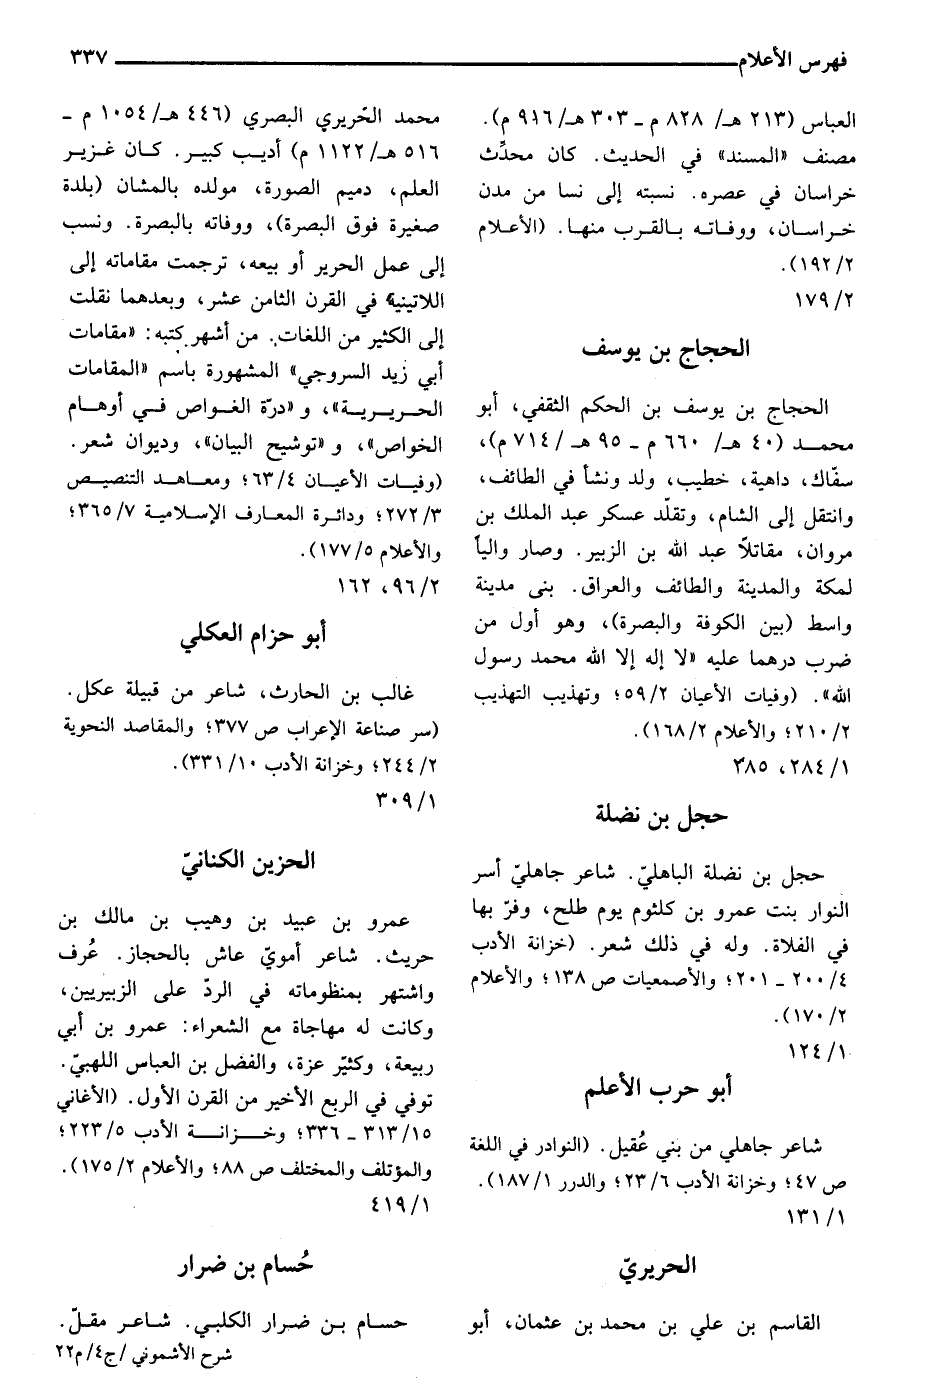 فهرس الأعلام ٣٣٧
العباس (٢١٣ هـ/ ٨٢٨ م ـ ٣٠٣ هـ/ ٩١٦ م).
مصنف «المسند» في الحديث. كان محدِّث
خراسان في عصره. نسبته إلى نسا من مدن
خراسان، ووفاته بالقرب منها. (الأعلام
٢/ ١٩٢).
٢/ ١٧٩
الحجاج بن يوسف
الحجاج بن يوسف بن الحكم الثقفي، أبو
محمد (٤٠ هـ/ ٦٦٠ م ـ ٩٥ هـ/ ٧١٤ م)،
سفّاك، داهية، خطيب، ولد ونشأ في الطائف،
وانتقل إلى الشام، وتقلّد عسكر عبد الملك بن
مروان، مقاتلاً عبد الله بن الزبير. وصار والياً
لمكة والمدينة والطائف والعراق. بنى مدينة
واسط (بين الكوفة والبصرة)، وهو أول من
ضرب درهما عليه «لا إله إلا الله محمد رسول
الله». (وفيات الأعيان ٢/ ٥٩؛ وتهذيب التهذيب
٢/ ٢١٠؛ والأعلام ٢/ ١٦٨).
١/ ٢٨٤، ٣٨٥
حجل بن نضلة
حجل بن نضلة الباهليّ. شاعر جاهليّ أسر
النوار بنت عمرو بن كلثوم يوم طلح، وفرّ بها
في الفلاة. وله في ذلك شعر. (خزانة الأدب
٤/ ٢٠٠ ـ ٢٠١؛ والأصمعيات ص ١٣٨؛ والأعلام
٢/ ١٧٠).
١/ ١٢٤
أبو حرب الأعلم
شاعر جاهلي من بني عُقيل. (النوادر في اللغة
ص ٤٧؛ وخزانة الأدب ٦/ ٢٣؛ والدرر ١/ ١٨٧).
١/ ١٣١
الحريريّ
القاسم بن علي بن محمد بن عثمان، أبو
محمد الحّريري البصري (٤٤٦ هـ/ ١٠٥٤ م ـ
٥١٦ هـ/ ١١٢٢ م) أديب كبير. كان غزير
العلم، دميم الصورة، مولده بالمشان (بلدة
صغيرة فوق البصرة)، ووفاته بالبصرة. ونسب
إلى عمل الحرير أو بيعه، ترجمت مقاماته إلى
اللاتينية في القرن الثامن عشر، وبعدهما نقلت
إلى الكثير من اللغات. من أشهر كتبه: «مقامات
أبي زيد السروجي» المشهورة باسم «المقامات
الحريرية»، و «درّة الغواص في أوهام
الخواص»، و «توشيح البيان»، وديوان شعر.
(وفيات الأعيان ٤/ ٦٣؛ ومعاهد التنصيص
٣/ ٢٧٢؛ ودائرة المعارف الإسلامية ٧/ ٣٦٥؛
والأعلام ٥/ ١٧٧).
٢/ ٩٦، ١٦٢
أبو حزام العكلي
غالب بن الحارث، شاعر من قبيلة عكل.
(سر صناعة الإعراب ص ٣٧٧؛ والمقاصد النحوية
٢/ ٢٤٤؛ وخزانة الأدب ١٠/ ٣٣١).
١/ ٣٠٩
الحزين الكنانيّ
عمرو بن عبيد بن وهيب بن مالك بن
حريث. شاعر أمويّ عاش بالحجاز. عُرف
واشتهر بمنظوماته في الردّ على الزبيريين،
وكانت له مهاجاة مع الشعراء: عمرو بن أبي
ربيعة، وكثيّر عزة، والفضل بن العباس اللهبيّ.
توفي في الربع الأخير من القرن الأول. (الأغاني
١٥/ ٣١٣ ـ ٣٣٦؛ وخزانة الأدب ٥/ ٢٢٣؛
والمؤتلف والمختلف ص ٨٨؛ والأعلام ٢/ ١٧٥).
١/ ٤١٩
حُسام بن ضرار
حسام بن ضرار الكلبي. شاعر مقلّ.
شرح الأشموني /ج٤/ م٢٢